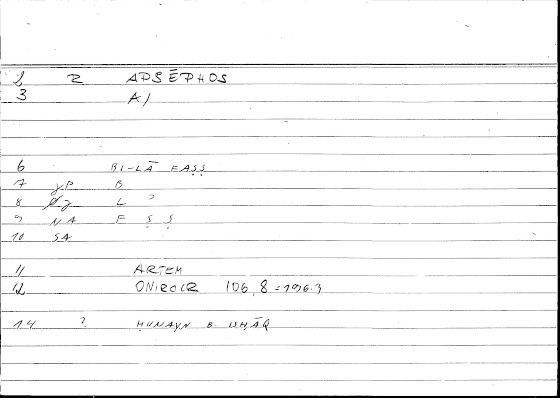 2 Z APSĒPHOS
3 A/
6 BI-LĀ FAṢṢ
7 γP B
8 L ʾ
9 NA F Ṣ Ṣ
10 SA
11 ARTEM
12 ONIROCR 106,8=196.3
14 ? ḤUNAYN B. ISḤĀQ